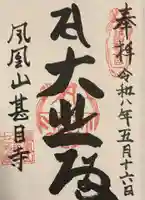 奉拝 令和八年五月十六日
大悲殿
鳳凰山 甚目寺